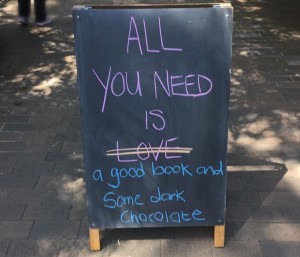 ALL
YOU NEED
IS
LOVE
a good book and
Some dark
chocolate